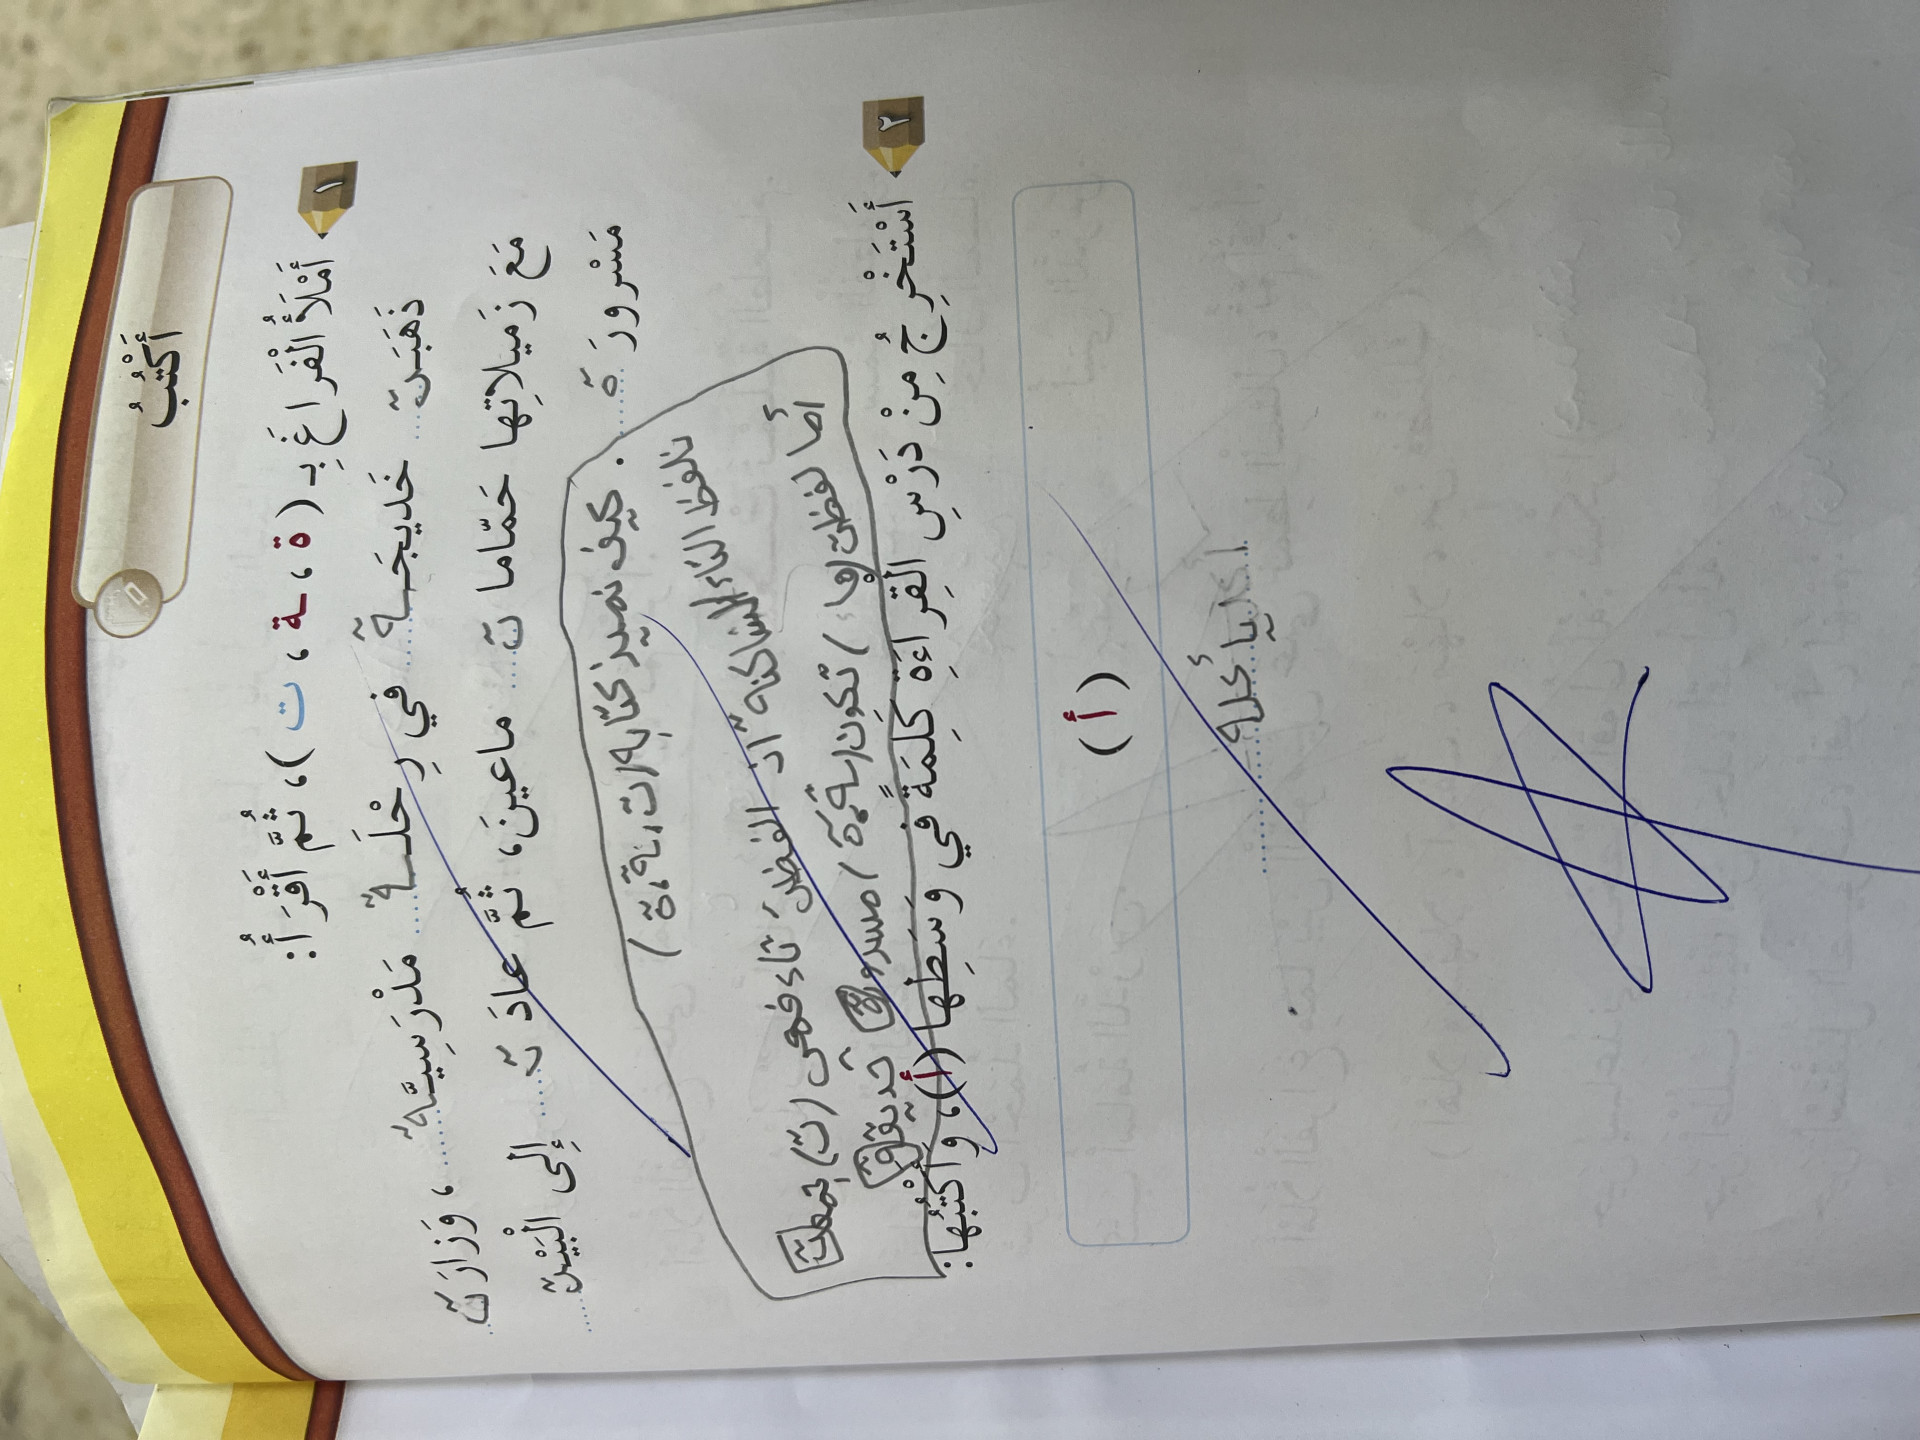 أَكْتُبُ
١ أَمْلَأُ الْفَراغَ بِـ ( ة ، ـة ، ت )، ثُمَّ أَقْرَأُ:
ذَهَبَتْ خَديجَـة في رِحْلَـة مَدْرَسِيَّة ، وَزارَت
مَعَ زَميلاتِها حَمّاما ت ماعينَ، ثُمَّ عادَ ت إِلى الْبَيْت
مَسْرورَ ة .
كيف نميز كتابة (ت، ـة، ة)
نلفظ التاء الساكنة اذ الفظن تاء فهي (ت) بحملت
أما لفظت (هاء) تكون (ـة، ة) مسرورة حديقة
٢ أَسْتَخْرِجُ مِنْ دَرْسِ الْقِراءَةِ كَلِمَةً في وَسَطِها (أ)، وَأَكْتُبُها:
( أ )
يأكله